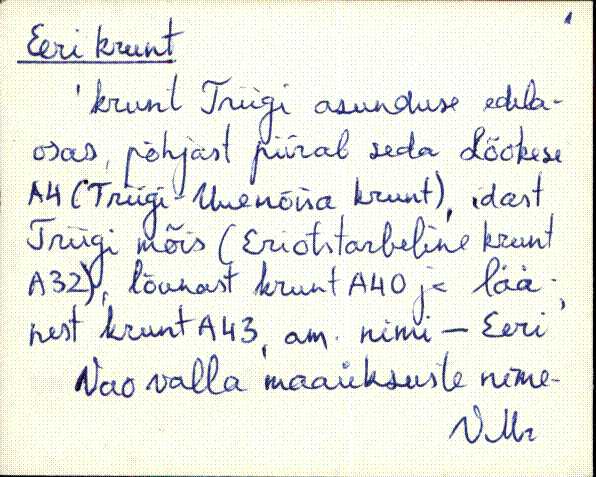 1
Eeri krunt
'krunt Triigi asunduse edela-
osas, põhjast piirab seda Lõokese
A4 (Triigi-Uuemõisa krunt), idast
Triigi mõis (Eriotstarbeline krunt
A32), lõunast krunt A40 ja lää-
nest krunt A43, am. nimi – Eeri'
Vao valla maaüksuste nime-
V.Mr